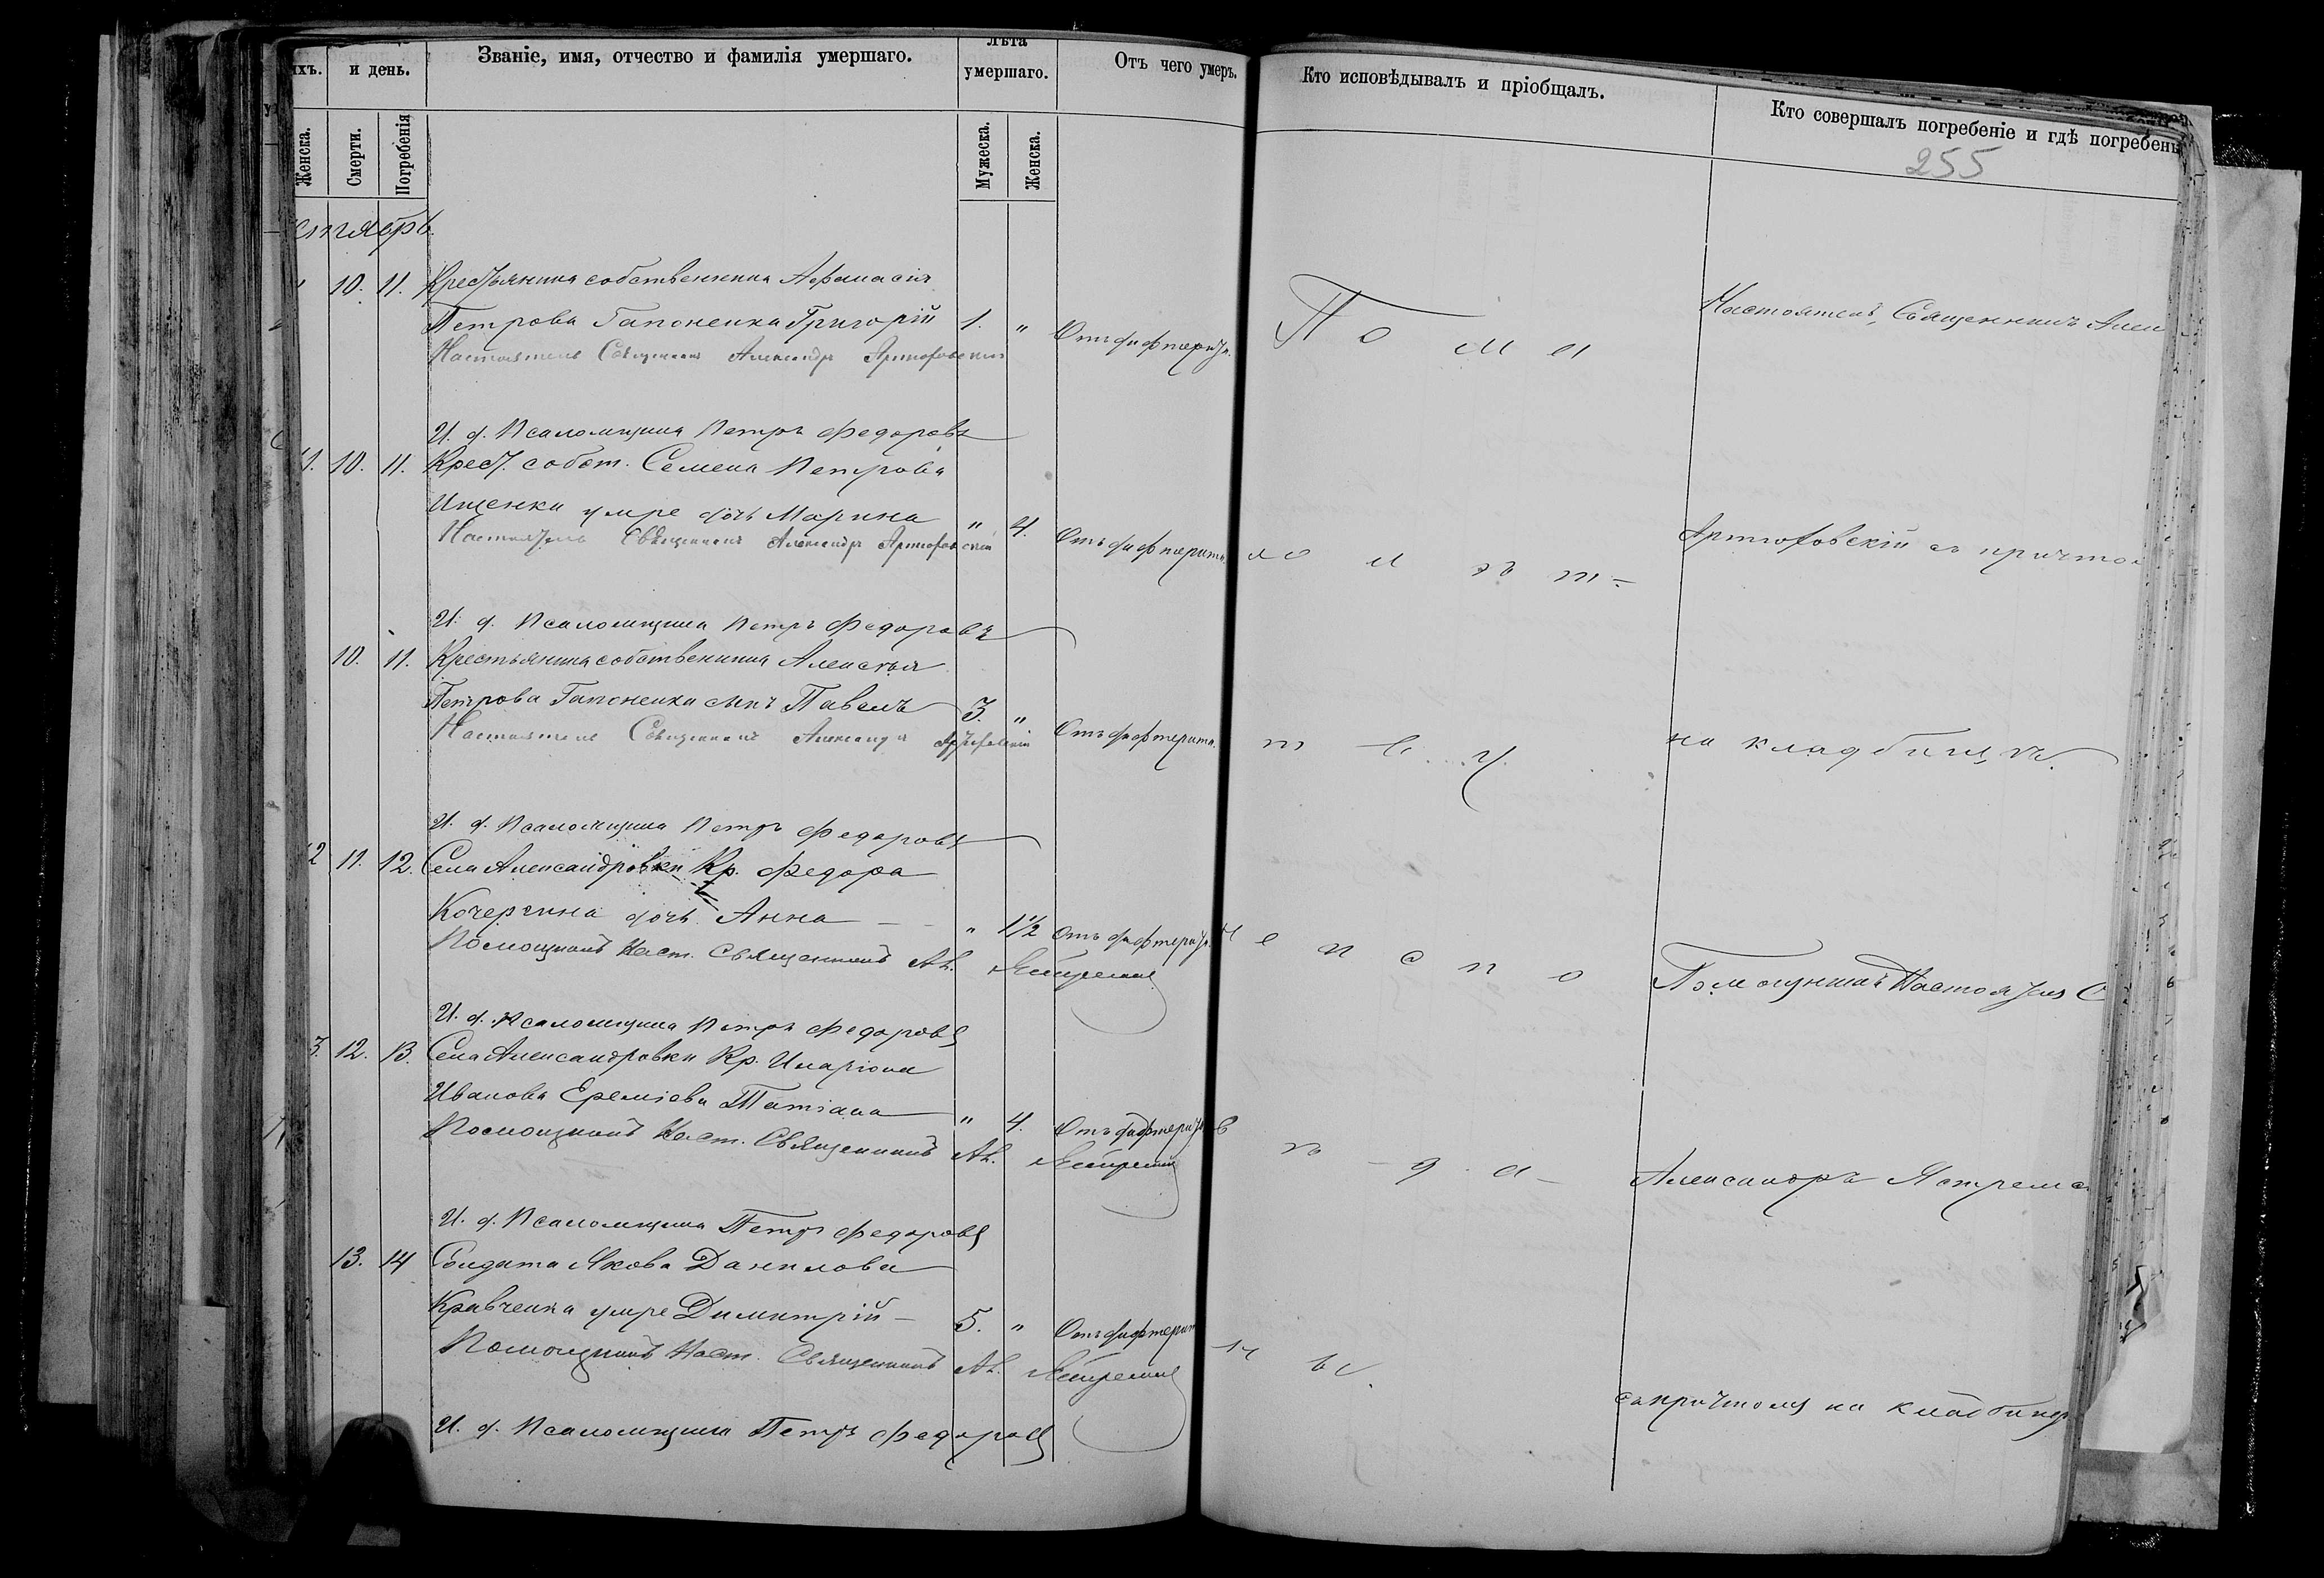 ихъ. и день. Званіе, имя, отчество и фамилія умершаго. Лѣта умершаго. Отъ чего умеръ. Кто исповѣдывалъ и пріобщалъ. Кто совершалъ погребеніе и гдѣ погребены
Женска. Смерти. Погребенія Мужеска. Женска.
255
стябрь.
" 10. 11. Крестьянина собственника Афанасія
Петрова Гапоненка Григорій 1. " Отъ дифтерита.
Настоятель Священникъ Александръ Артюховскій
И. д. Псаломщика Петръ Федоровъ
11. 10. 11. Крест. собст. Семена Петрова
Ищенки умре дочь Марина " 4. Отъ дифтерита.
Настоятель Священникъ Александръ Артюховскій
И. д. Псаломщика Петръ Федоровъ
10. 11. Крестьянина собственника Алексѣя
Петрова Гапоненки сынъ Павелъ 3. " Отъ дифтерита.
Настоятель Священникъ Александръ Артюховскій
И. д. Псаломщика Петръ Федоровъ
12 11. 12. Села Александровки Кр. Федора
Кочергина дочь Анна " 1½ Отъ дифтерита.
Помощникъ Наст. Священникъ Ал. Ястремск
И. д. Псаломщика Петръ Федоровъ
3. 12. 13. Села Александровки Кр. Иларіона
Иванова Ереміева Татіана " 4. Отъ дифтерита
Помощникъ Наст. Священникъ Ал. Ястремск
И. д. Псаломщика Петръ Федоровъ
13. 14 Солдата Якова Данилова
Кравченка умре Димитрій 5. " Отъ дифтерит
Помощникъ Наст. Священникъ Ал. Ястремск
И. д. Псаломщика Петръ Федоровъ
По ма
ло лѣт
ству
не спо
вѣда
ны.
Настоятель, Священникъ Алек
Артюховскій съ причтом
на кладбищѣ.
Помощникъ Настоятеля С
Александръ Ястремс
съ причтомъ на кладбищ